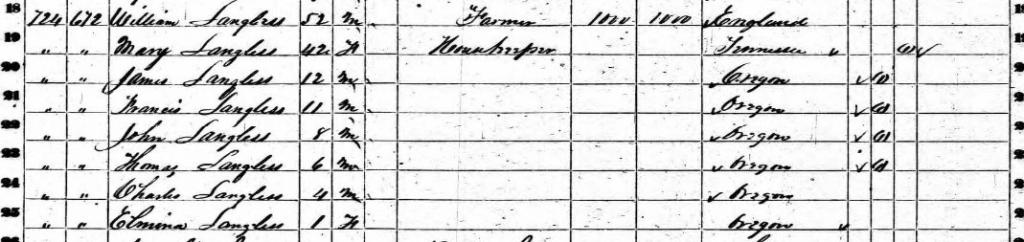 18 724 672 William Langless 52 M Farmer 1000 1000 England
19 " " Mary Langless 42 F Housekeeper Tennessee "
20 " " James Langless 12 M Oregon
21 " " Francis Langless 11 M Oregon
22 " " John Langless 8 M Oregon
23 " " Thomas Langless 6 M Oregon
24 " " Charles Langless 4 M Oregon
25 " " Elmina Langless 1 F Oregon